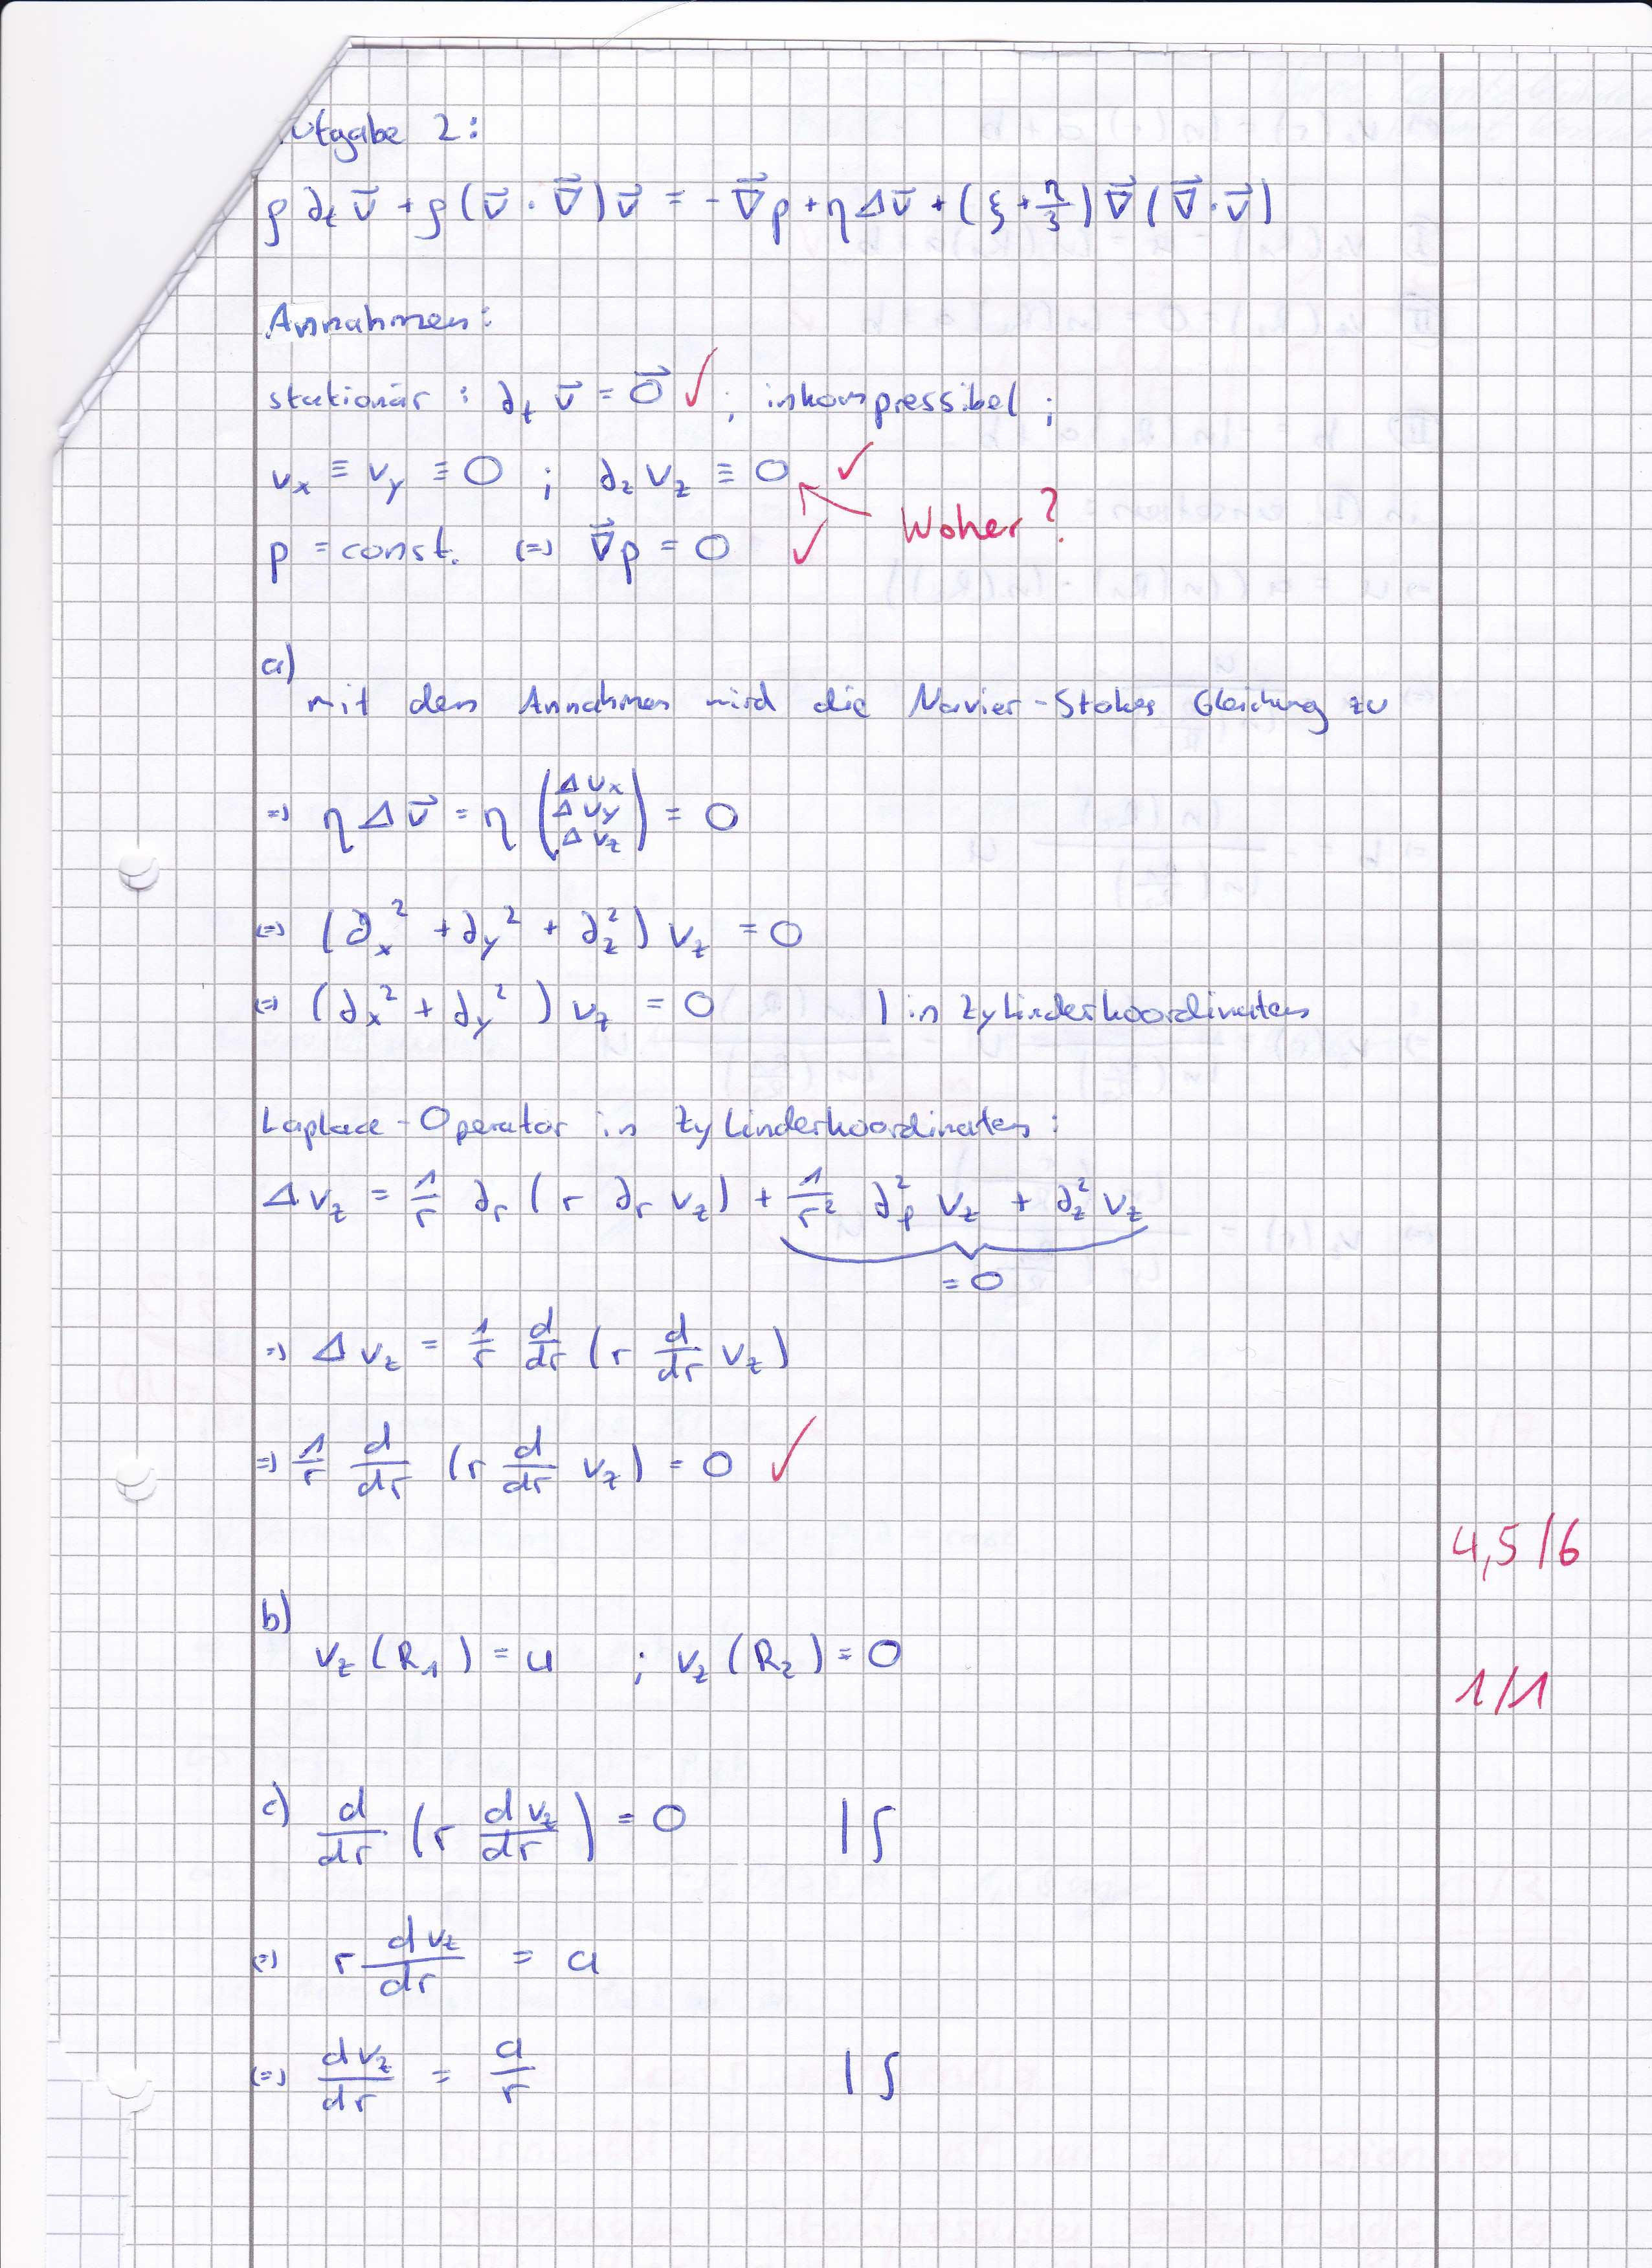 ufgabe 2:
ρ ∂ₜ v⃗ + ρ (v⃗ · ∇⃗) v⃗ = - ∇⃗p + η Δv⃗ + (ξ + η/3) ∇⃗ (∇⃗ · v⃗)
Annahmen:
stationär : ∂ₜ v⃗ = 0⃗ ✓ ; inkompressibel ;
vₓ ≡ v_y ≡ 0 ; ∂_z v_z ≡ 0 ✓
Woher?
p = const. (=) ∇⃗p = 0 ✓
a)
mit den Annahmen wird die Navier-Stokes Gleichung zu
=) η Δ v⃗ = η (Δvₓ Δv_y Δv_z) = 0
(=) (∂ₓ² + ∂_y² + ∂_z²) v_z = 0
(=) (∂ₓ² + ∂_y²) v_z = 0 | in Zylinderkoordinaten
Laplace-Operator in Zylinderkoordinaten:
Δ v_z = 1/r ∂_r (r ∂_r v_z) + 1/r² ∂_φ² v_z + ∂_z² v_z
= 0
=) Δ v_z = 1/r d/dr (r d/dr v_z)
=) 1/r d/dr (r d/dr v_z) = 0 ✓
4,5/6
b)
v_z (R₁) = u ; v_z (R₂) = 0
1/1
c) d/dr (r dv_z/dr) = 0 | ∫
(=) r dv_z/dr = a
(=) dv_z/dr = a/r | ∫